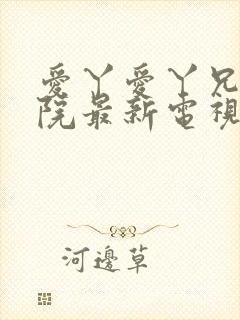 愛丫愛丫兄
院最新電視
河邊草